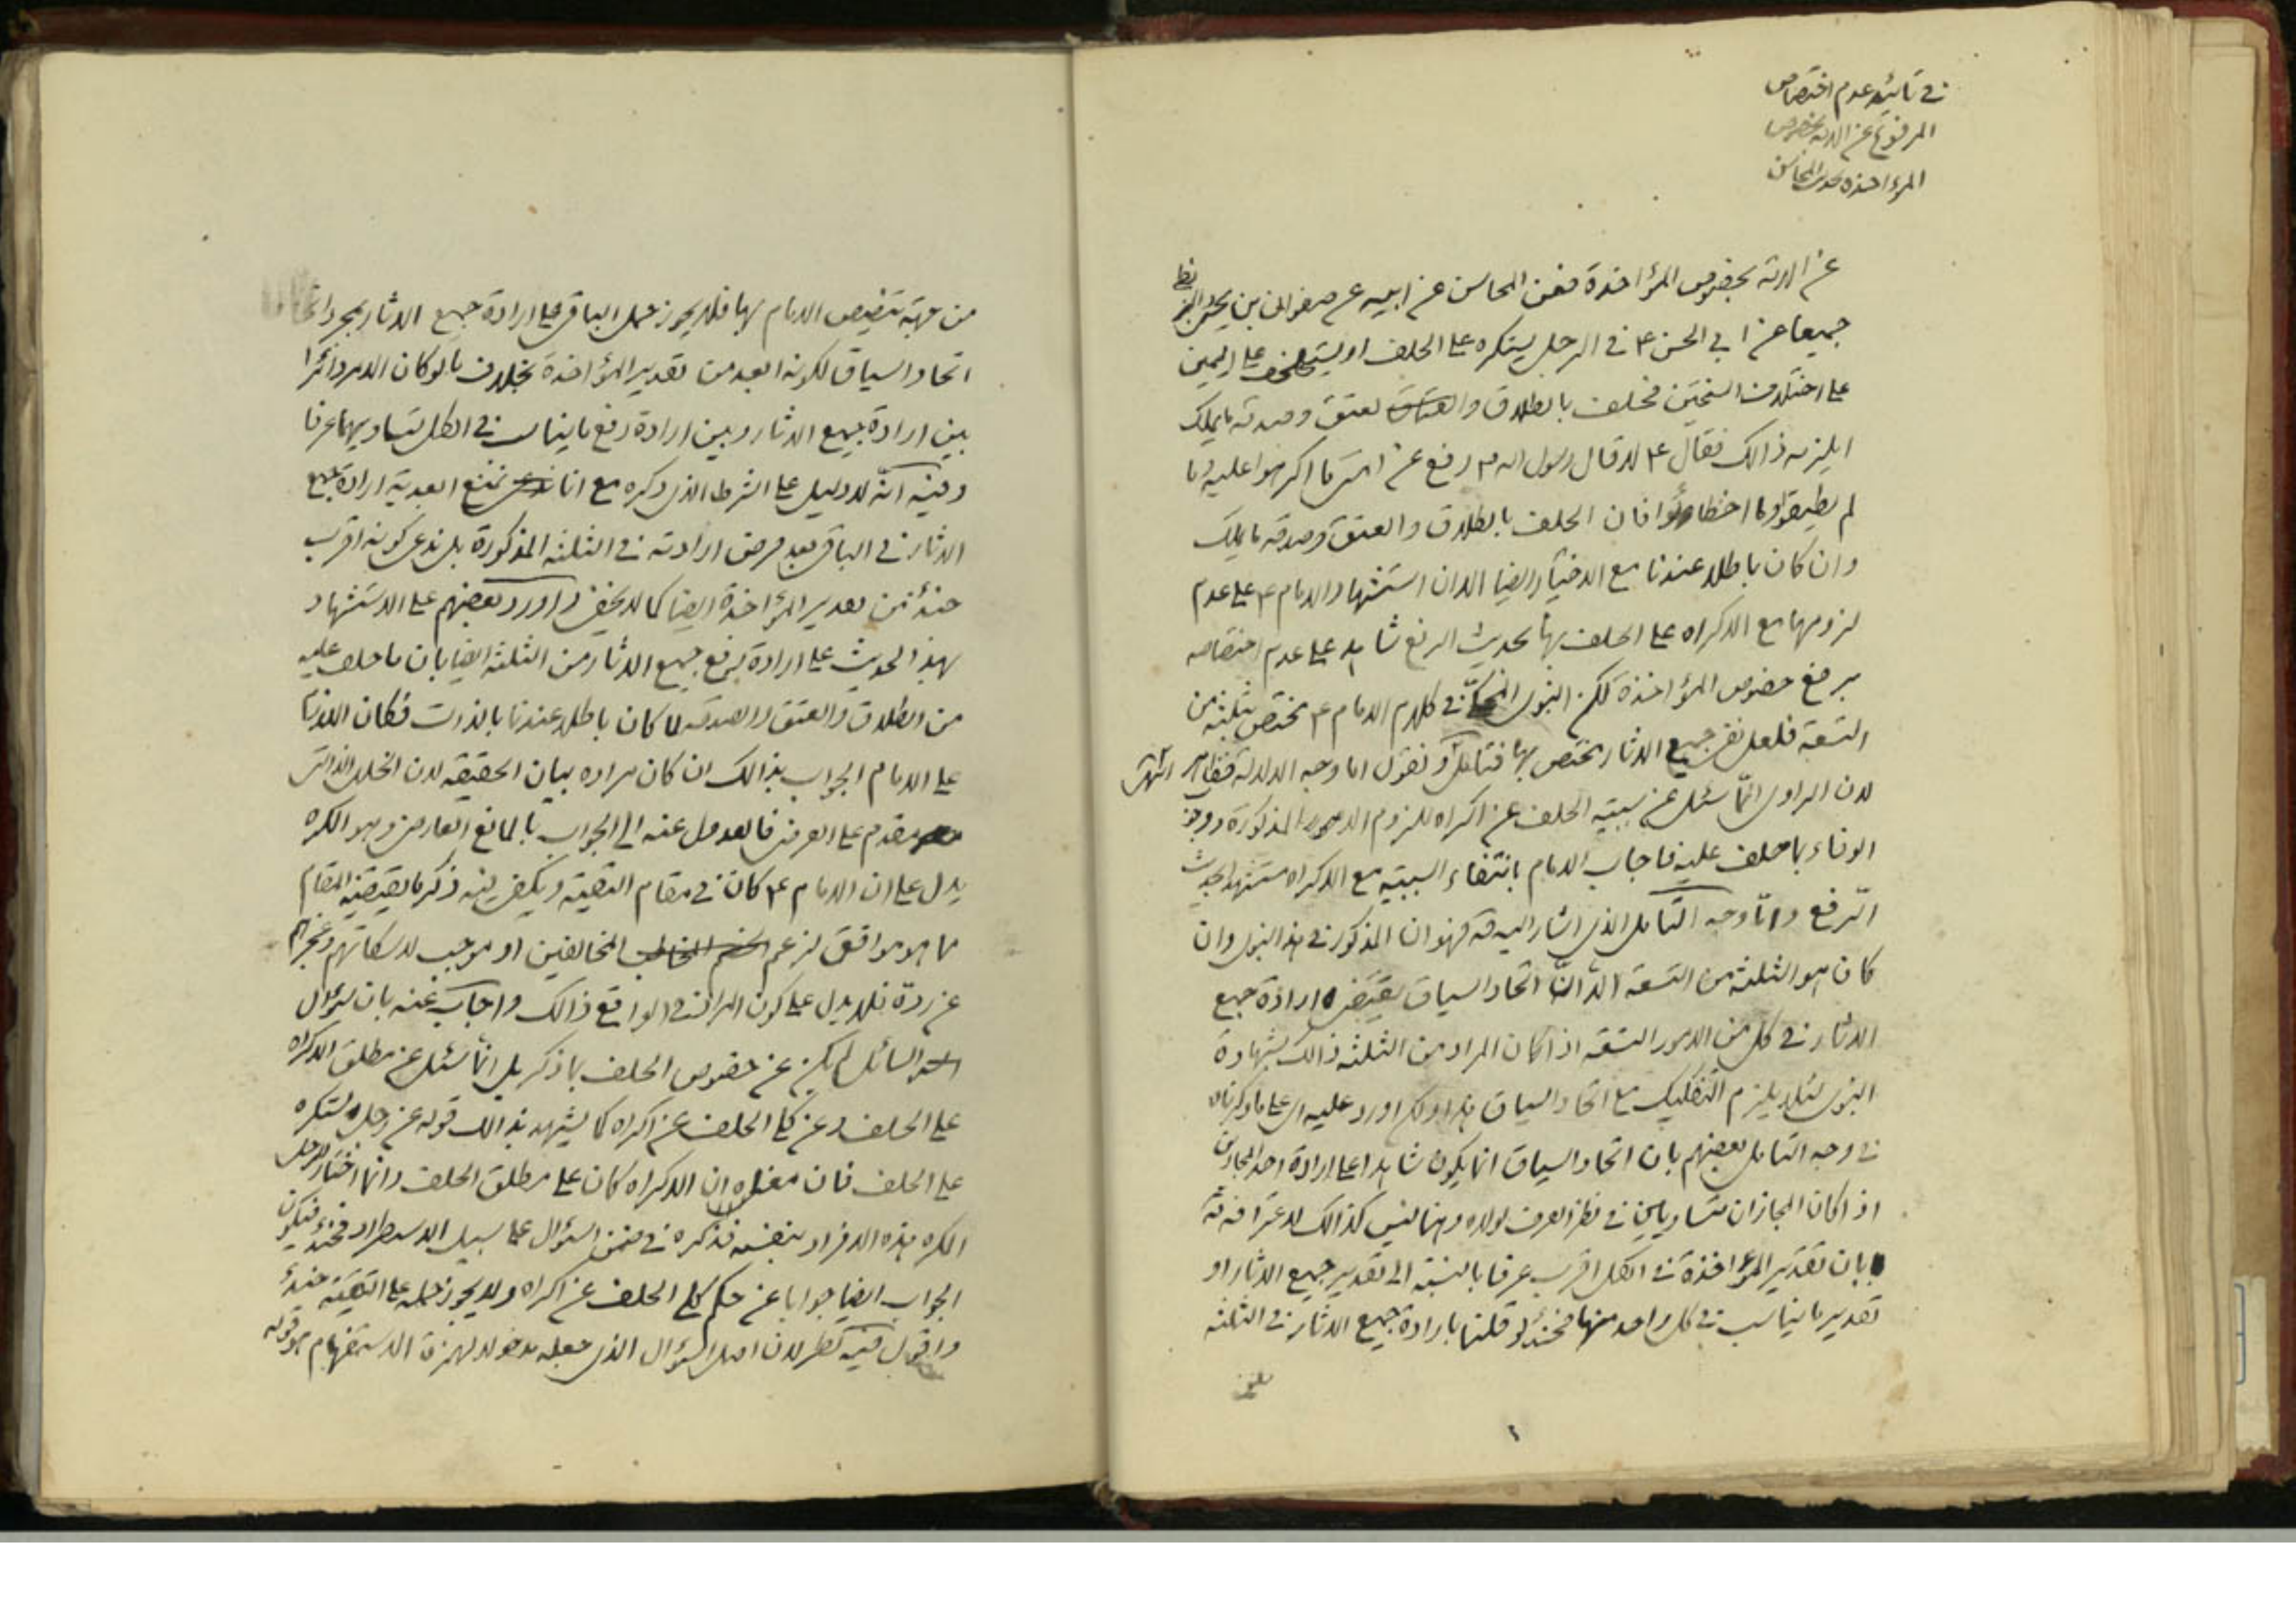 في تائيد عدم اختصاص
المرفوع عن الامة بخصوص
المؤاخذة بحديث المحاسن
عن الامة بخصوص المؤاخذة فعن المحاسن عن ابيه عن صفوان بن يحيى
جميعا عن ابي الحسن ع في الرجل يستكره على الحلف او يستحلف على اليمين
على اختلاف النسختين فحلف بالطلاق والعتاق لعتق وصدقة ما يملك
ايلزمه ذالك فقال ع لا قال رسول الله ص رفع عن امتى ما اكرهوا عليه وما
لم يطيقوا وما اخطاؤا فان الحلف بالطلاق والعتق وصدقه ما يملك
وان كان باطلا عندنا مع الاختيار ايضا الا ان استشهاد الامام ع على عدم
لزومها مع الاكراه على الحلف بها بحديث الرفع شاهد على عدم اختصاصه
برفع خصوص المؤاخذة لكن النبوى المحكىّ في كلام الامام ع مختص بثلثة من
التسعة فلعل نفى جميع الاثار مختص بها فتامل ونقول اما وجه الدلالة فظاهر انتهى
لان الراوى انّما سئل عن سببية الحلف عن اكراه للزوم الامور المذكورة ووجوب
الوفاء بما حلف عليه فاجاب الامام بانتفاء السببيه مع الاكراه مستشهدا بحديث
الرّفع وامّا وجه التّامل الذى اشار اليه قه فهو ان المذكور في هذا النبوى وان
كان هو الثلثة من التسعة الّا انّ اتحاد السياق يقتضى ارادة جميع
الاثار في كل من الامور التسعة اذا كان المراد من الثلثة ذالك بشهادة
النبوى لئلا يلزم التفكيك مع اتحاد السياق هذا ولكن اورد عليه اى على ما ذكرناه
في وجه التامل بعضهم بان اتحاد السياق انما يكون شاهدا على ارادة احد المجازين
اذا كان المجازان متساويين في نظر العرف لولاه وهنا ليس كذالك لاعترافه قه
بان تقدير المؤاخذة في الكل اقرب عرفا بالنسبة الى تقدير جميع الاثار او
تقدير ما يناسب في كل واحد منها فحينئذ لو قلنا بارادة جميع الاثار في الثلثه
من جهة تنصيص الامام بها فلا يجوز حمل الباقى على ارادة جميع الاثار بمجرد
اتحاد السياق لكونه ابعد من تقدير المؤاخذة بخلاف ما لو كان الامر دائرا
بين ارادة جميع الاثار وبين ارادة رفع ما يناسب في الكل لتساويهما عرفا
وفيه انّه لا دليل على الشرط الذى ذكره مع انا نمنع ابعدية ارادة جميع
الاثار في الباقى بعد فرض ارادته في الثلثه المذكورة بل ندعى كونه اقرب
حينئذ من تقدير المؤاخذة ايضا كما لا يخفى واورد بعضهم على الاستشهاد
بهذا الحديث على ارادة رفع جميع الاثار من الثلثه ايضا بان ما حلف عليه
من الطلاق والعتق والصدقه لما كان باطلا عندنا بالذات فكان اللازم
على الامام الجواب بذالك ان كان مراده بيان الحقيقه لان الخلل الذاتى
مقدم على العرضى فالعدول عنه الى الجواب بالمانع العارضى وهو الكره
يدل على ان الامام ع كان في مقام التقية ويكفى فيه ذكر ما يقتضيه المقام
مما هو موافق لزعم المخالفين او موجب لاسكاتهم وعجزهم
عن ردّه فلا يدل على كون المراد في الواقع ذالك واجاب عنه بان سؤال
السائل لم يكن عن خصوص الحلف بما ذكر بل انّما سئل عن مطلق الاكراه
على الحلف وعن كلى الحلف عن اكراه كما يشهد بذالك قوله عن رجل يستكره
على الحلف فان معناه ان الاكراه كان على مطلق الحلف وانما اختار الرجل
المكره هذه الافراد بنفسه فذكره في ضمن السؤال على سبيل الاستطراد فحينئذ فيكون
الجواب ايضا جوابا عن حكم كلى الحلف عن اكراه ولا يجوز حمله على التقيّة حينئذ
واقول فيه نظر لان اصل السؤال الذى جعله مدخولا لهمزة الاستفهام هو قوله